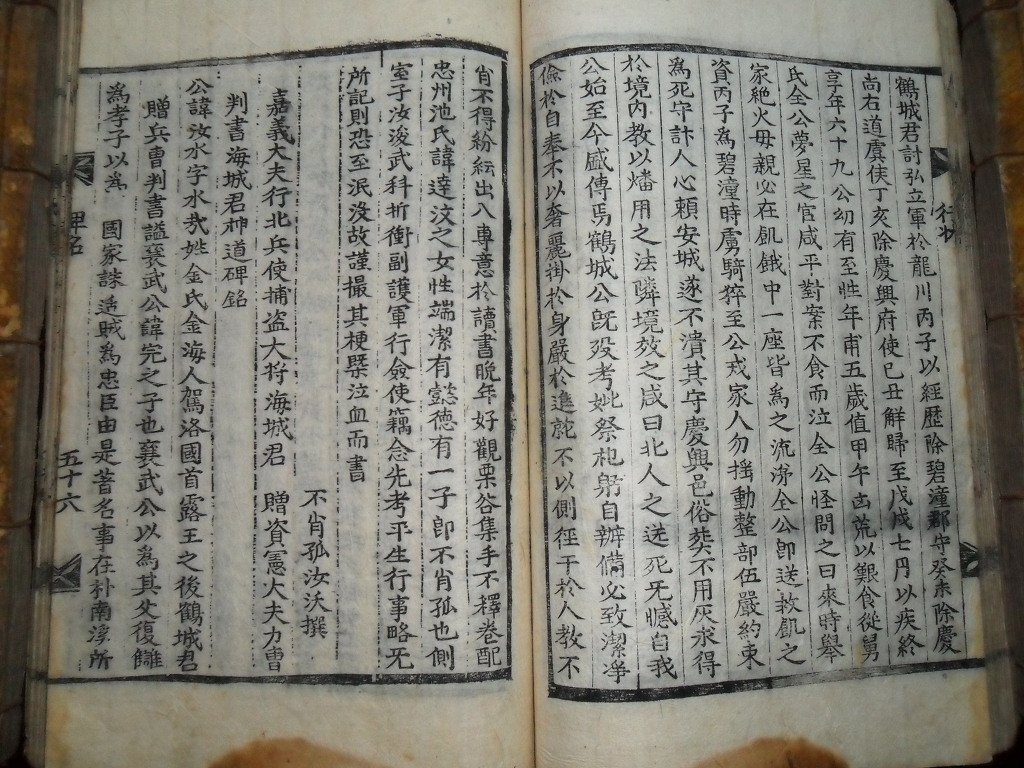 鶴城君討弘立軍於龍川丙子以經歷除碧潼郡守癸未除慶
尚右道虞侯丁亥除慶興府使己丑解歸至戊戌七月以疾終
享年六十九公幼有至性年甫五歲值甲午凶荒以艱食從舅
氏全公夢星之官咸平對案不食而泣全公怪問之曰來時舉
家絶火母親必在飢餓中一座皆爲之流涕全公卽送救飢之
資丙子爲碧潼時虜騎猝至公戒家人勿搖動整部伍嚴約束
爲死守計人心賴安城遂不潰其守慶興邑俗葬不用灰求得
於境内教以燔用之法隣境效之咸曰北人之送死旡憾自我
公始至今感傳焉鶴城公旣歿考妣祭祀躬自辦備必致潔淨
儉於自奉不以奢麗掛於身嚴於進就不以側徑干於人教不
行状
肖不得紛紜出入專意於讀書晩年好觀栗谷集手不釋卷配
忠州池氏諱達汶之女性端潔有懿德有一子卽不肖孤也側
室子汝浚武科折衝副護軍行僉使竊念先考平生行事略旡
所記則恐至泯没故謹撮其梗槩泣血而書
不肖孤汝沃撰
嘉義大夫行北兵使捕盗大將海城君 贈資憲大夫力曺
判書海城君神道碑銘
公諱汝水字水㢤姓金氏金海人駕洛國首露王之後鶴城君
贈兵曺判書諡襄武公諱完之子也襄武公以爲其父復讎
爲孝子以爲 國家誅逆賊爲忠臣由是著名事在朴南溪所
碑名
五十六